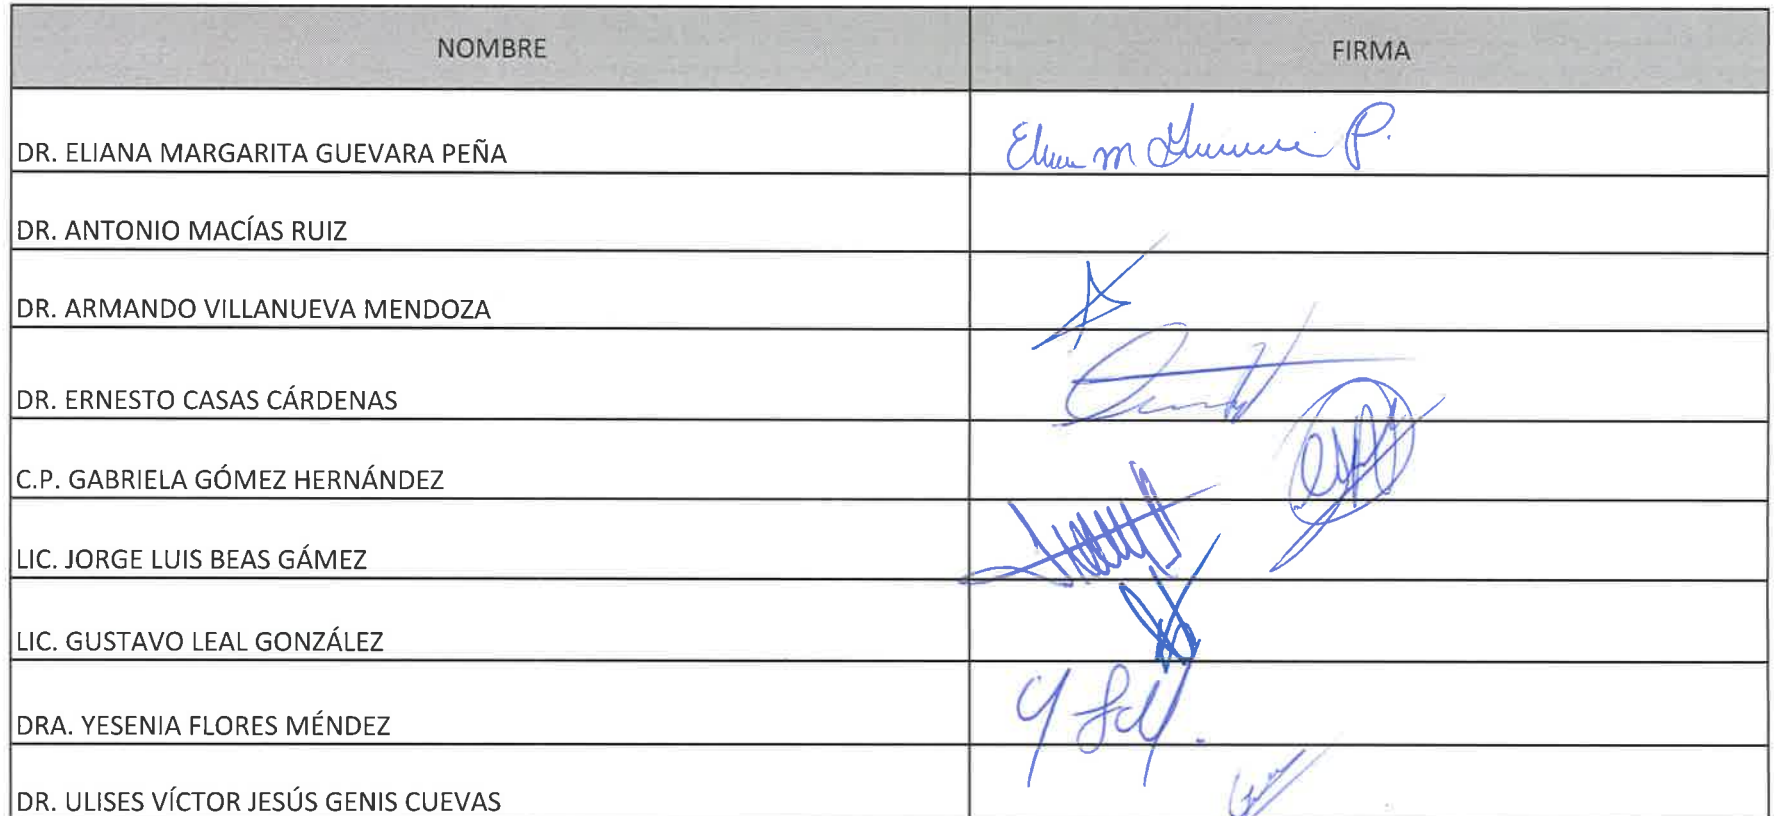 NOMBRE FIRMA
DR. ELIANA MARGARITA GUEVARA PEÑA
DR. ANTONIO MACÍAS RUIZ
DR. ARMANDO VILLANUEVA MENDOZA
DR. ERNESTO CASAS CÁRDENAS
C.P. GABRIELA GÓMEZ HERNÁNDEZ
LIC. JORGE LUIS BEAS GÁMEZ
LIC. GUSTAVO LEAL GONZÁLEZ
DRA. YESENIA FLORES MÉNDEZ
DR. ULISES VÍCTOR JESÚS GENIS CUEVAS